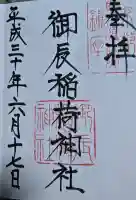 奉拝
御辰稲荷神社
平成三十年六月十七日